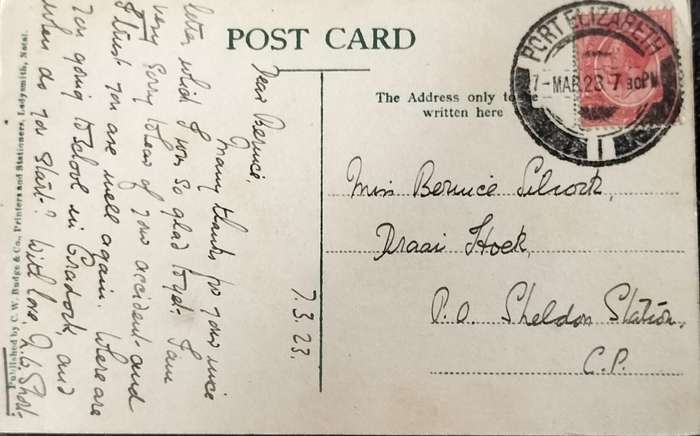 POST CARD
The Address only to be
written here
PORT ELIZABETH
7-MAR 23 7 30PM
1
7.3.23.
Dear Bernice,
Many thanks for your nice
letter which I was so glad to get. I am
very sorry to hear of your accident and
I trust you are well again. Where are
you going to School in Cradock, and
when do you start? With love,
Miss Bernice Silcock,
Draai Hoek,
P.O. Sheldon Station,
C.P.
Published by C. W. Budge & Co., Printers and Stationers, Ladysmith, Natal.